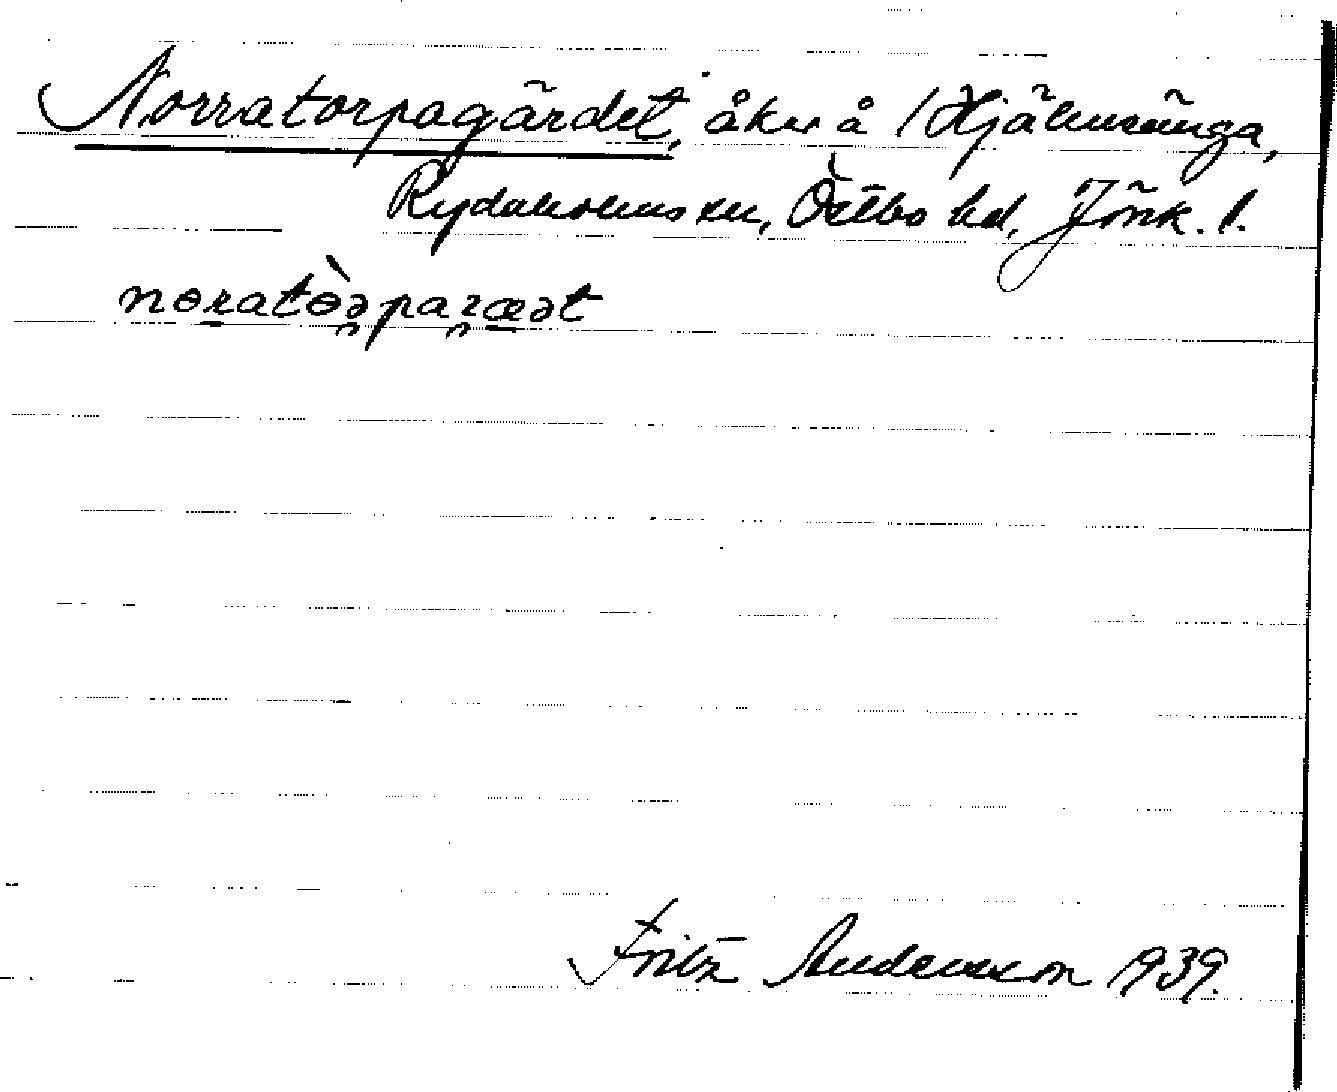 Norratorpagärdet, åker å /Hjälmsänga,
Rydaholms sn, Östbo hd, Jönk. l.
nɵratɵ̀əparæət
Fritz Andersson 1939.